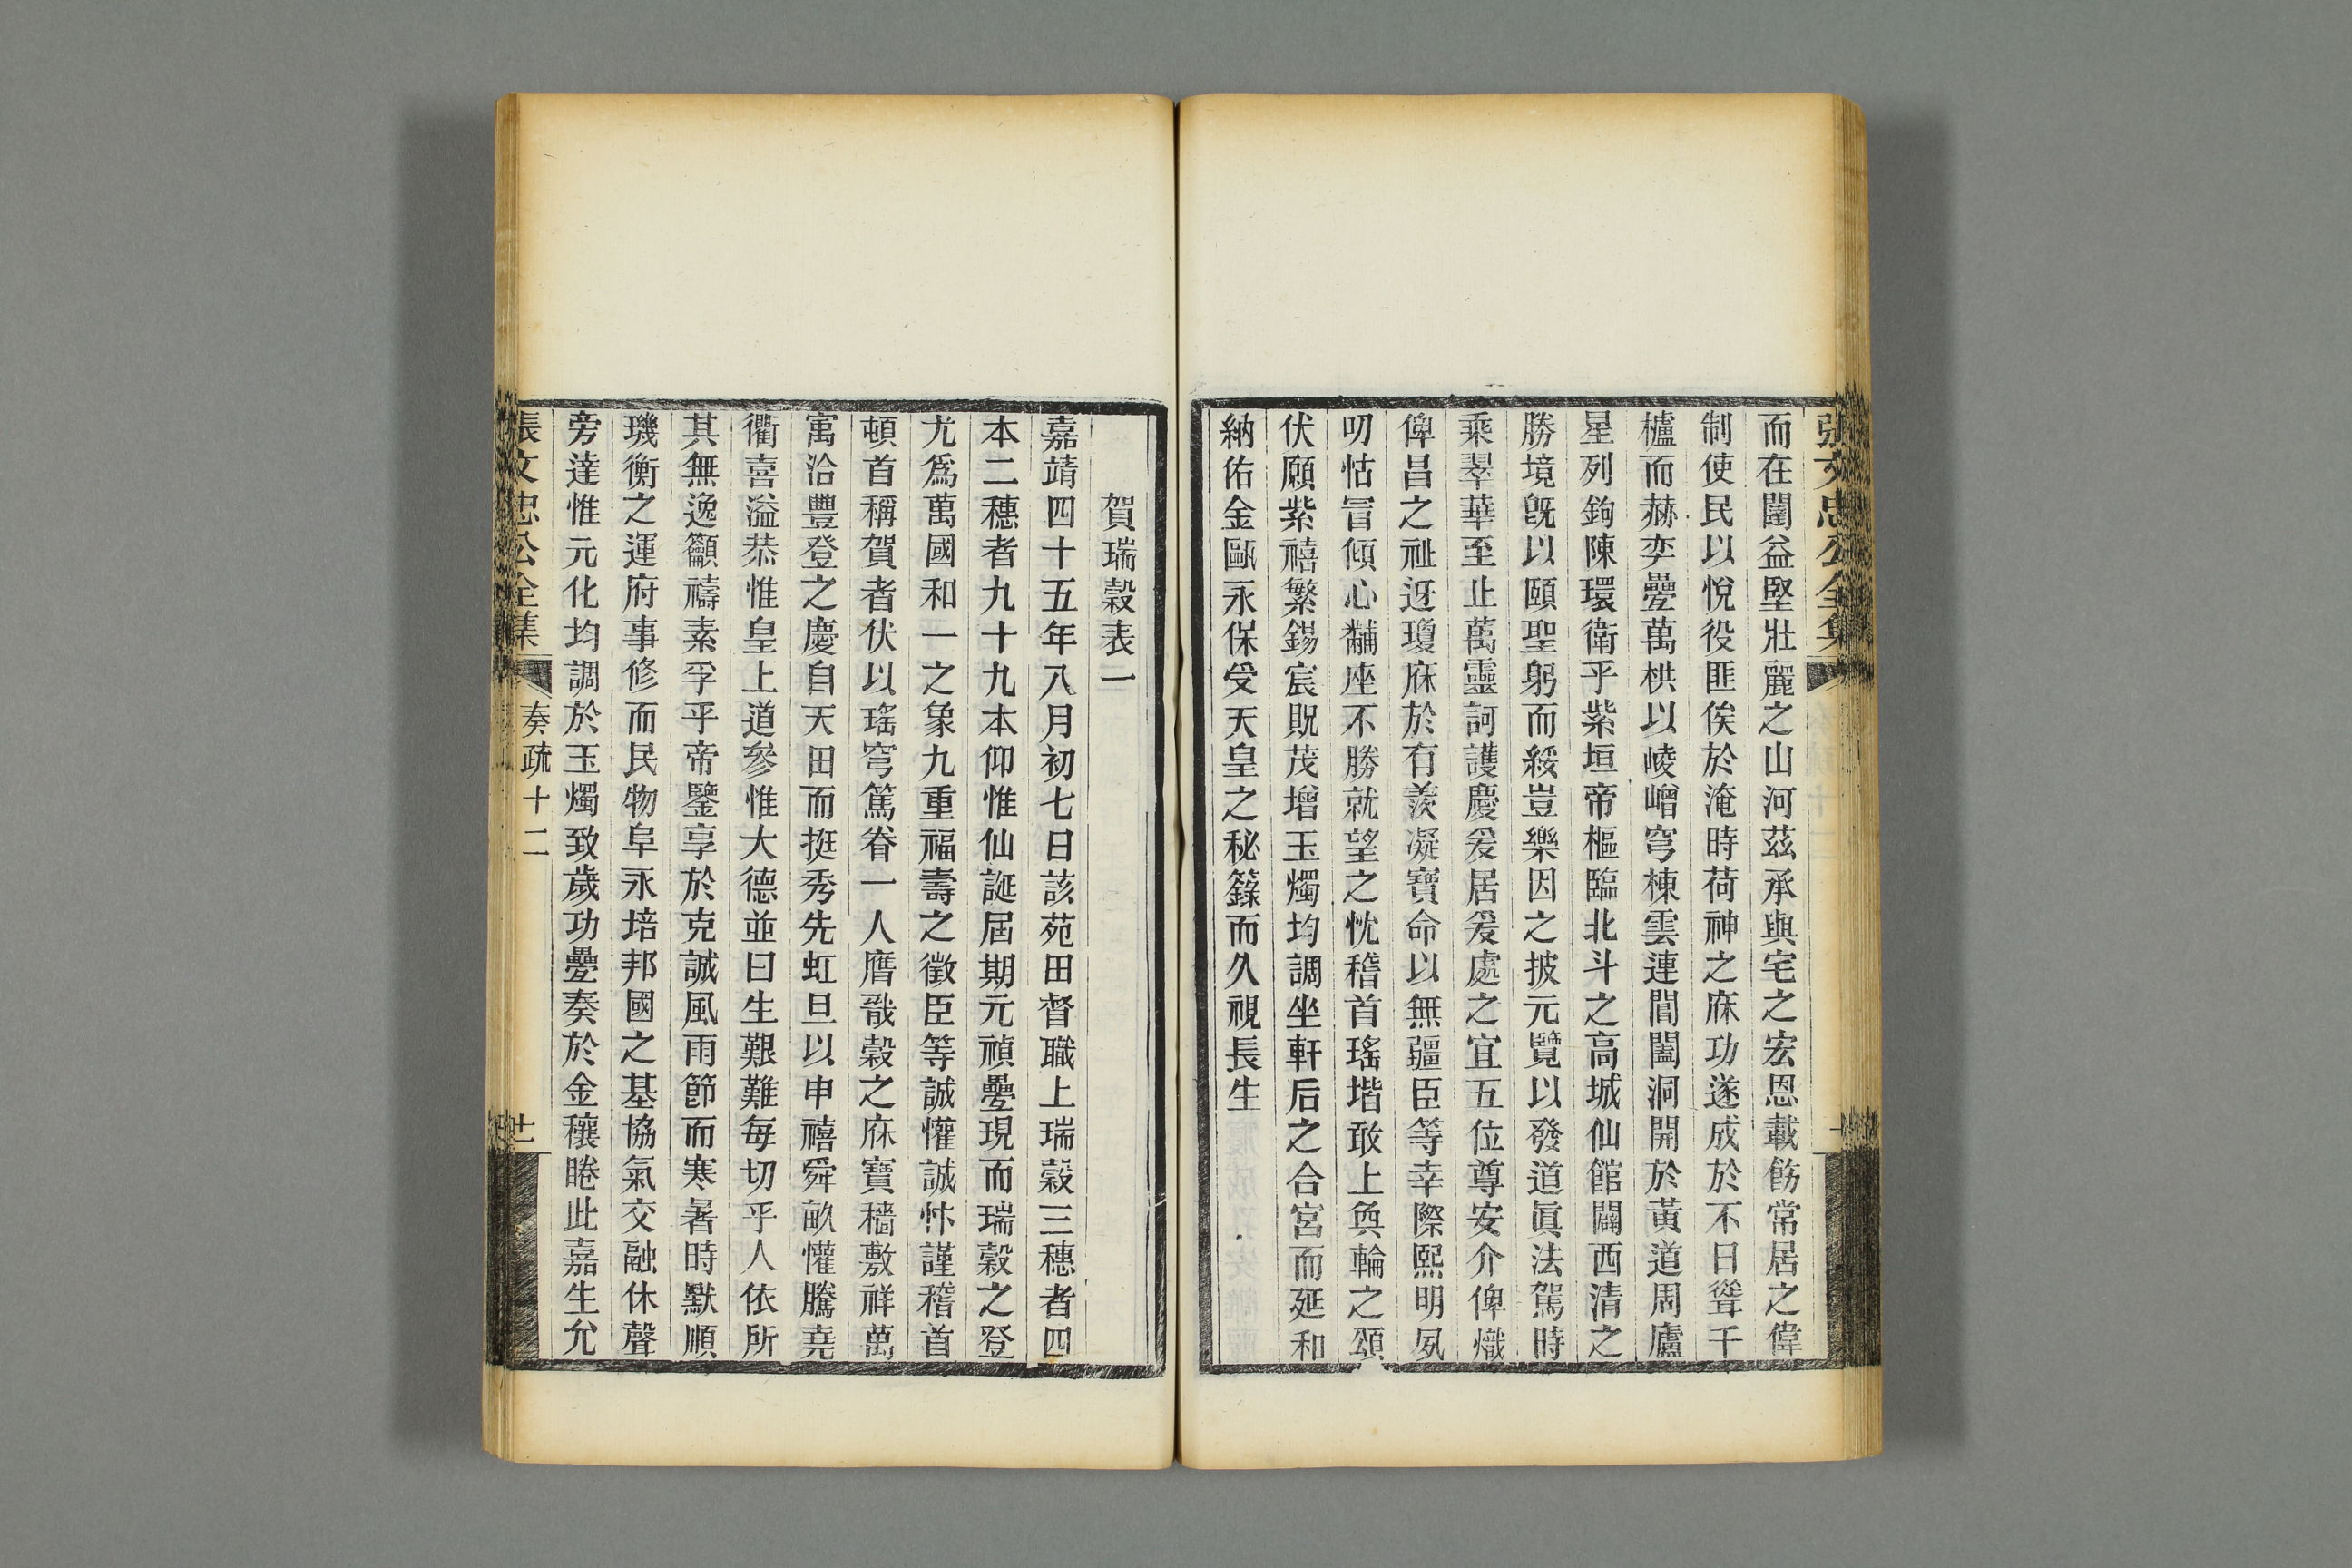 張文忠公全集
而在闈益堅壯麗之山河茲承與宅之宏恩載飭常居之偉
制使民以悅役匪俟於淹時荷神之庥功遂成於不日聳千
櫨而赫奕疊萬栱以崚嶒穹棟雲連閶闔洞開於黃道周廬
星列鉤陳環衛乎紫垣帝樞臨北斗之高城仙館闢西清之
勝境旣以頤聖躬而綏豈樂因之披元覽以發道眞法駕時
乘翠華至止萬靈訶護慶爰居爰處之宜五位尊安介俾熾
俾昌之祉迓瓊庥於有羨凝寶命以無疆臣等幸際熙明夙
叨怙冒傾心黼座不勝就望之忱稽首瑤堦敢上奐輪之頌
伏願紫禧繁錫宸貺茂增玉燭均調坐軒后之合宮而延和
納佑金甌永保受天皇之秘籙而久視長生
賀瑞穀表一
嘉靖四十五年八月初七日該苑田督職上瑞穀三穗者四
本二穗者九十九本仰惟仙誕屆期元禎疊現而瑞穀之登
尤爲萬國和一之象九重福壽之徵臣等誠懽誠忭謹稽首
頓首稱賀者伏以瑤穹篤眷一人膺戩穀之庥寶穡敷祥萬
寓洽豐登之慶自天田而挺秀先虹旦以申禧舜畝懽騰堯
衢喜溢恭惟皇上道參惟大德並曰生艱難每切乎人依所
其無逸籲禱素孚乎帝鑒享於克誠風雨節而寒暑時默順
璣衡之運府事修而民物阜永培邦國之基協氣交融休聲
旁達惟元化均調於玉燭致歲功疊奏於金穰睠此嘉生允
張文忠公全集
奏疏十二